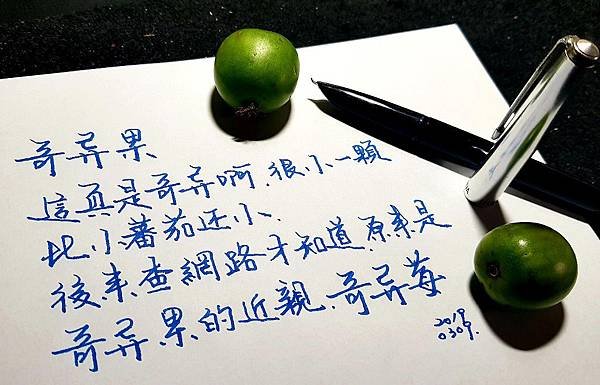 奇异果
這真是奇异啊.很小一顆
比小蕃茄还小.
後来查網路才知道.原来是
奇异果的近親.奇异莓
2019
0309.